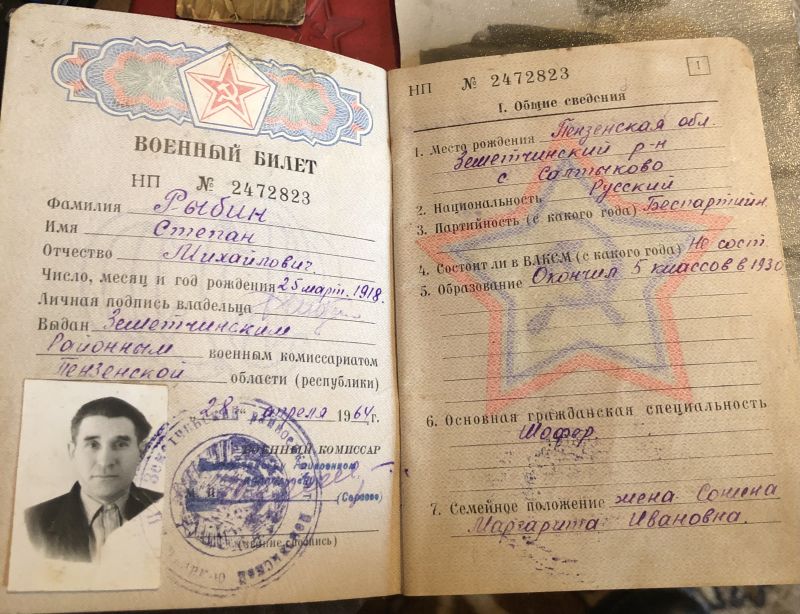 ВОЕННЫЙ БИЛЕТ
НП № 2472823
Фамилия Рыбин
Имя Степан
Отчество Михайлович.
Число, месяц и год рождения 25 март. 1918.
Личная подпись владельца
Выдан Земетчинским
Районным военным комиссариатом
Пензенской области (республики)
„28“ апреля 1964 г.
ВОЕННЫЙ КОМИССАР
М. П.
НП № 2472823
1
I. Общие сведения
1. Место рождения Пензенская обл.
Земетчинский р-н
с Салтыково
2. Национальность Русский
3. Партийность (с какого года) Беспартийн.
4. Состоит ли в ВЛКСМ (с какого года) Не сост.
5. Образование Окончил 5 классов в 1930
6. Основная гражданская специальность
Шофер
7. Семейное положение жена
Маргарита Ивановна.